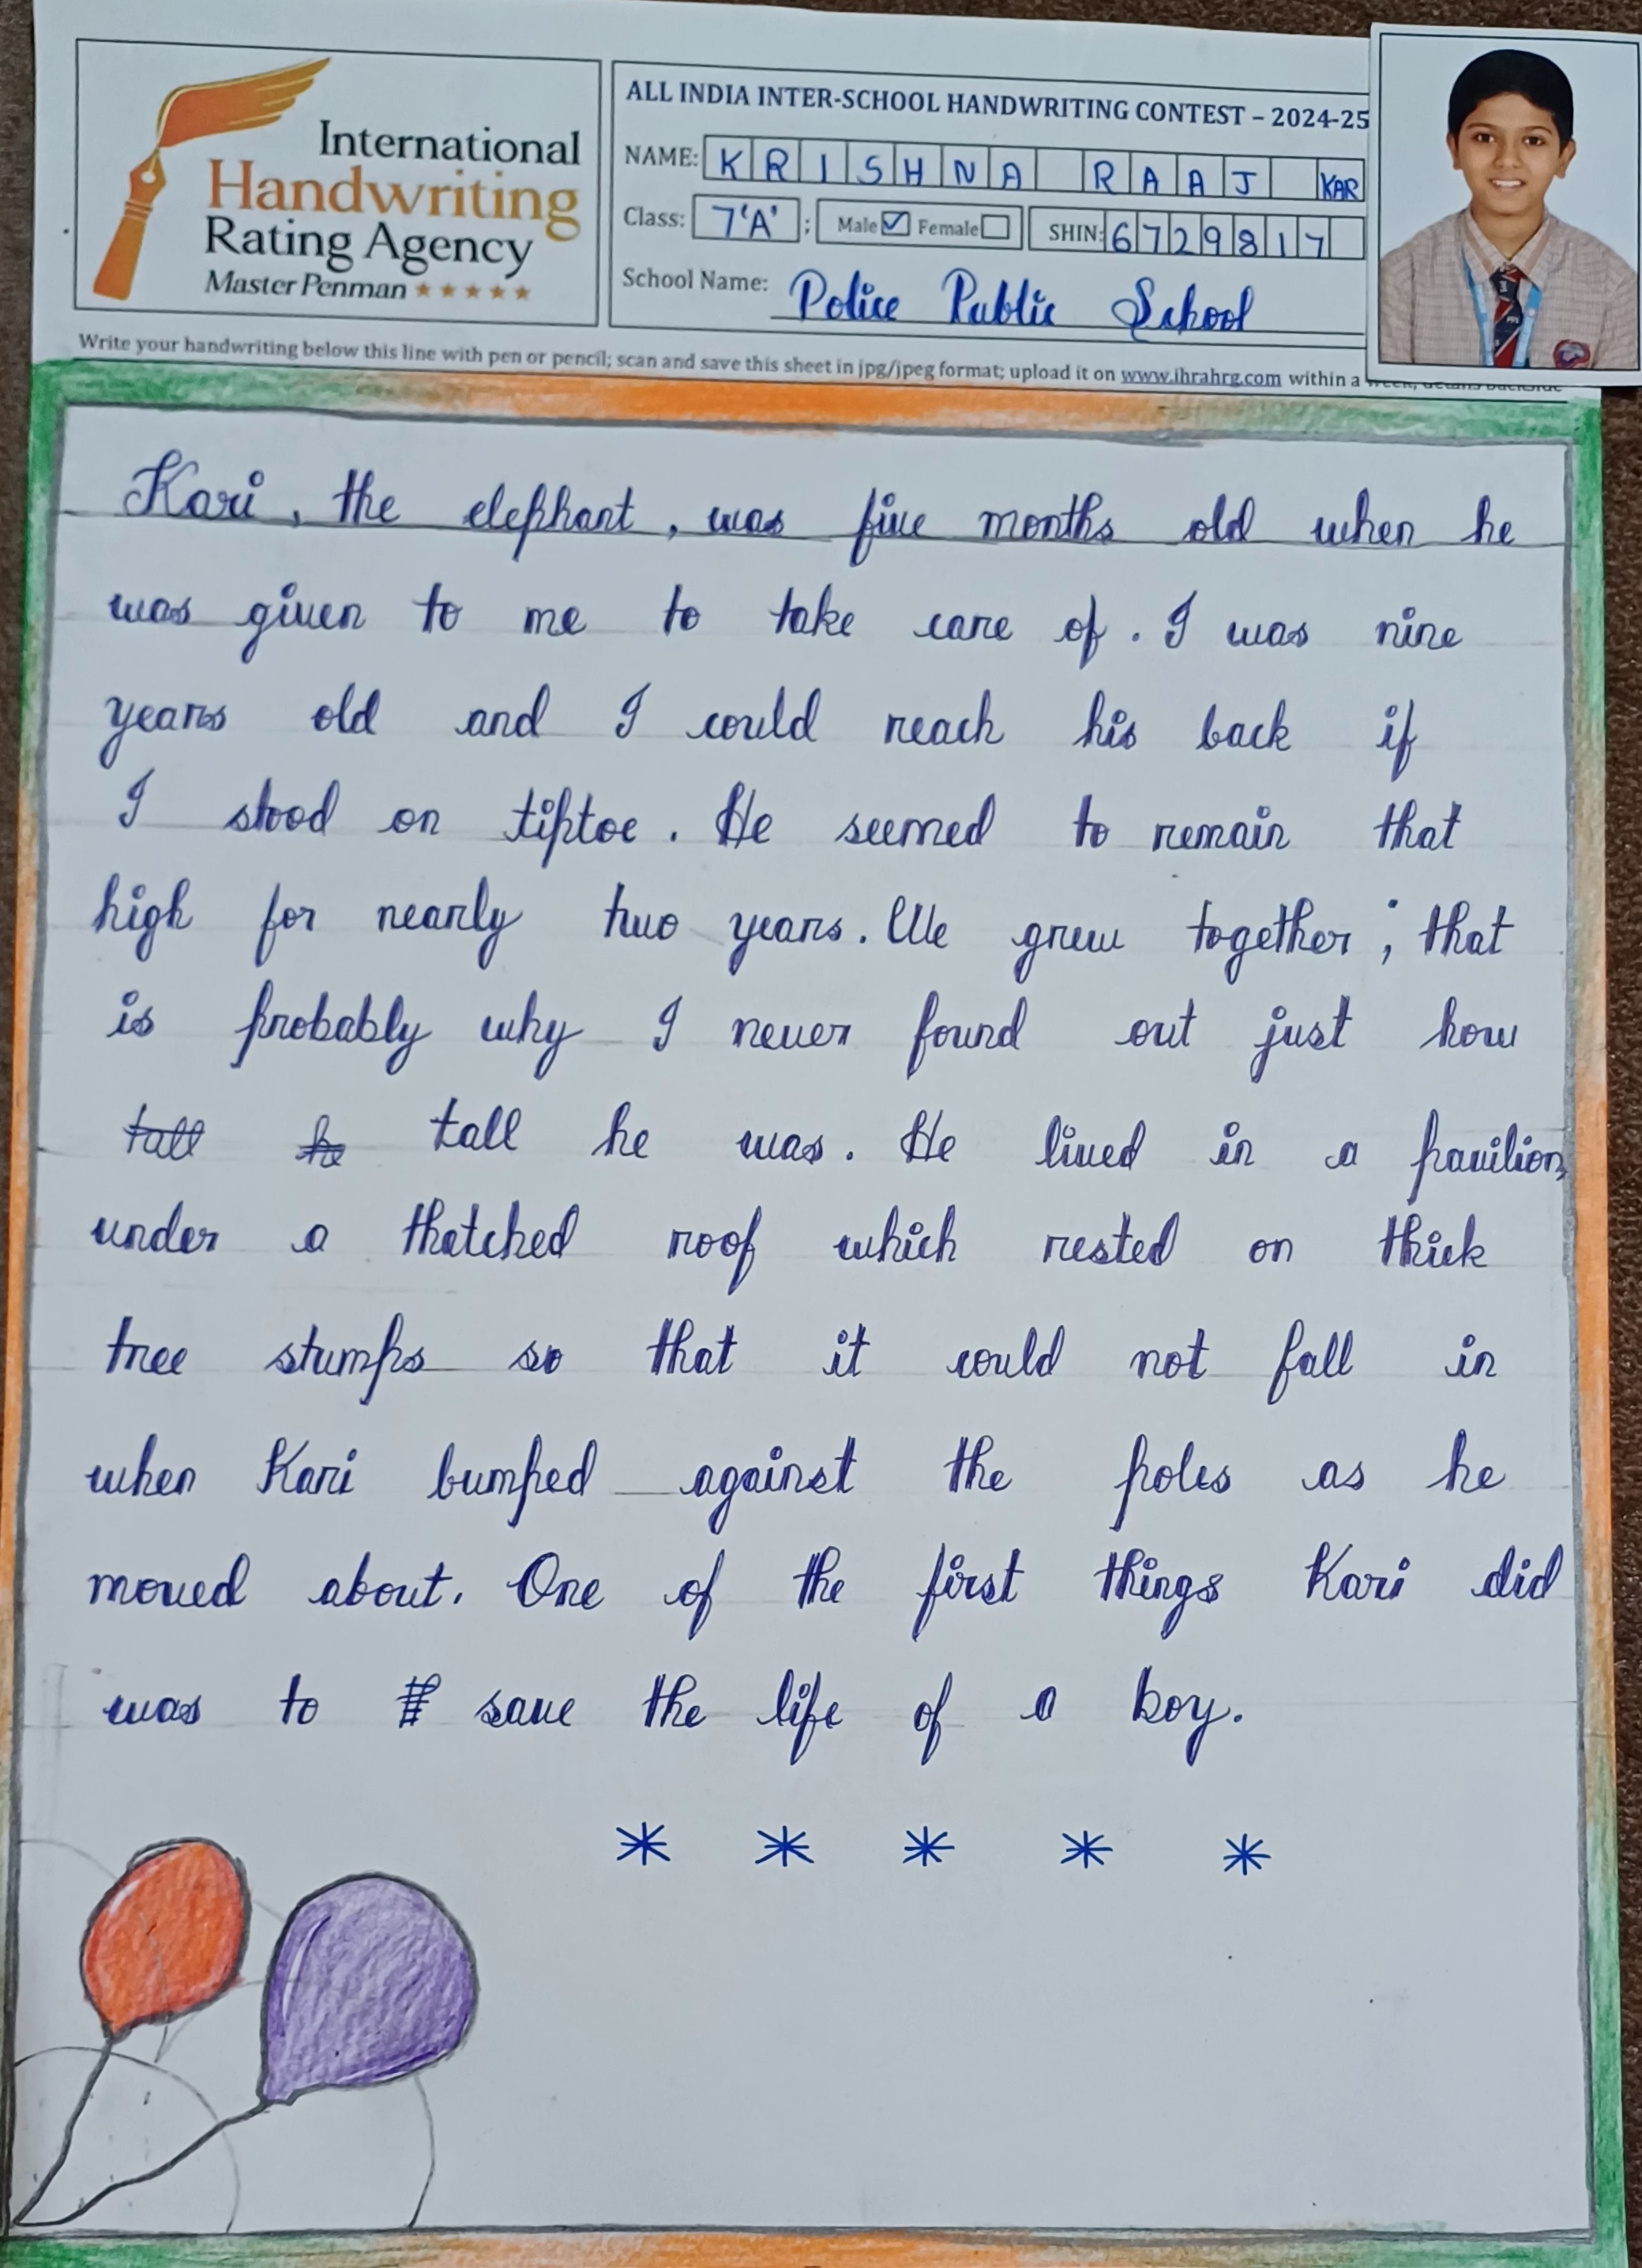 International
Handwriting
Rating Agency
Master Penman
ALL INDIA INTER-SCHOOL HANDWRITING CONTEST – 2024-25
NAME: KRISHNA RAAJ KAR
Class: 7'A' ; Male Female SHIN: 6729817
School Name: Police Public School
Write your handwriting below this line with pen or pencil; scan and save this sheet in jpg/jpeg format; upload it on www.ihrahrg.com within a week, details backside
Kari, the elephant, was five months old when he
was given to me to take care of. I was nine
years old and I could reach his back if
I stood on tiptoe. He seemed to remain that
high for nearly two years. We grew together; that
is probably why I never found out just how
tall he tall he was. He lived in a pavilion,
under a thatched roof which rested on thick
tree stumps so that it could not fall in
when Kari bumped against the poles as he
moved about. One of the first things Kari did
was to save the life of a boy.
* * * * *